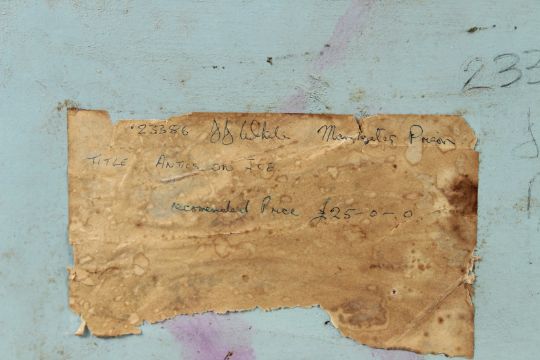 23386 JJ White Manchester Prison
TITLE ANTICS ON ICE
recomended Price £25-0-0
233